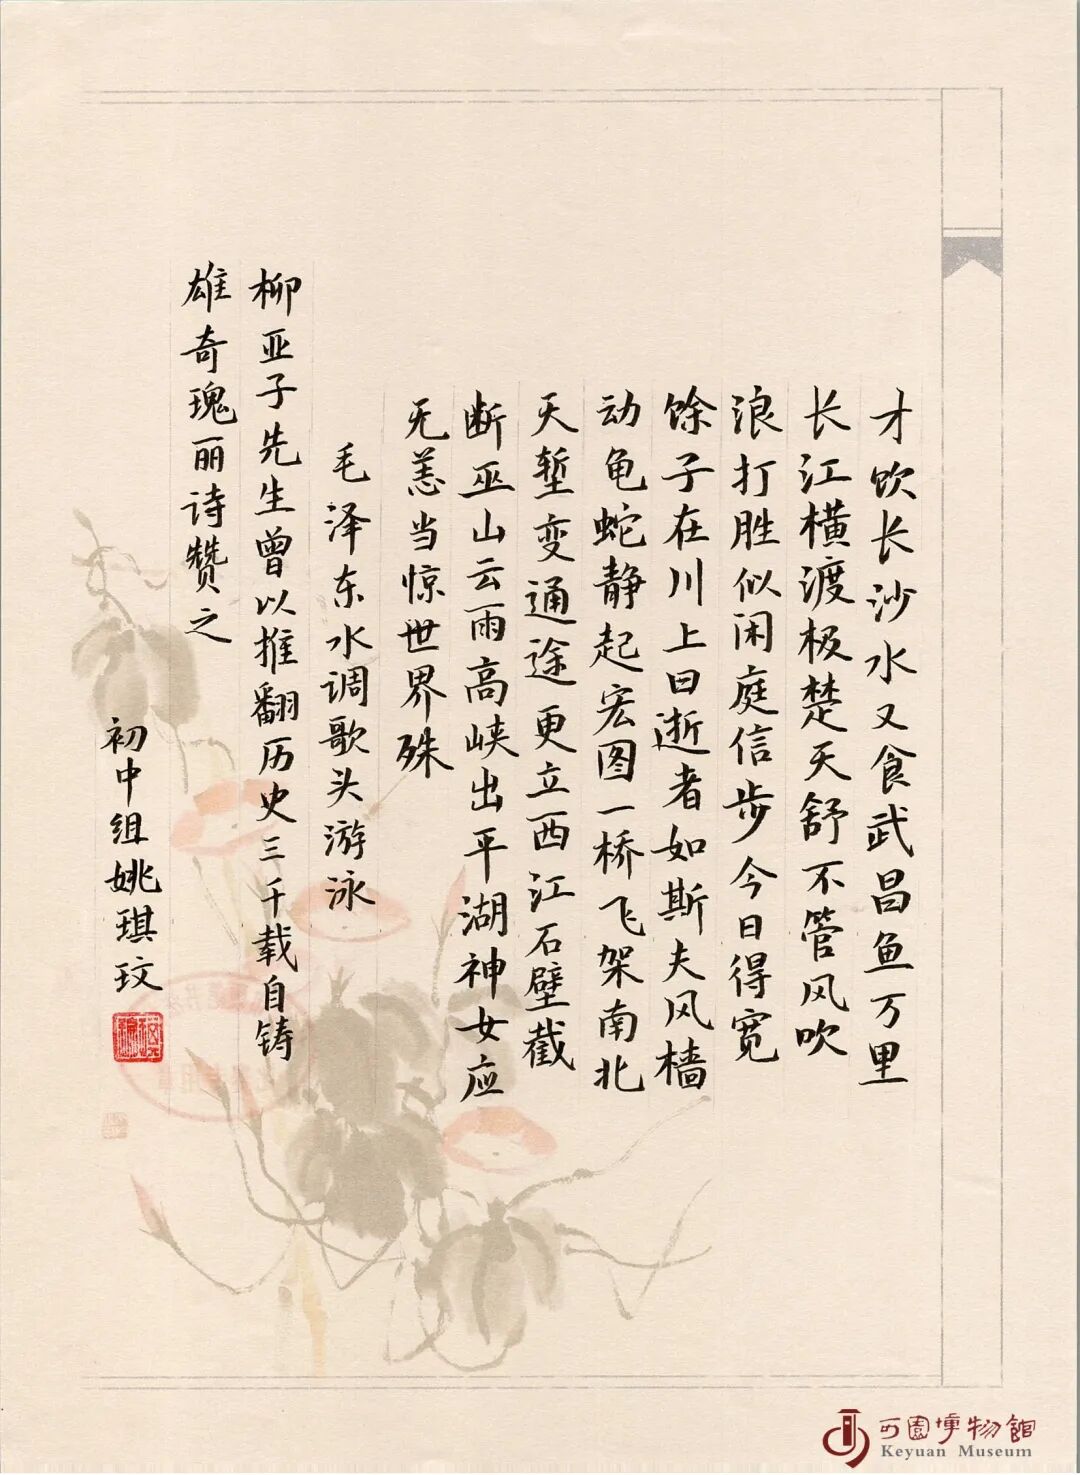 才饮长沙水又食武昌鱼万里
长江横渡极楚天舒不管风吹
浪打胜似闲庭信步今日得宽
馀子在川上曰逝者如斯夫风樯
动龟蛇静起宏图一桥飞架南北
天堑变通途更立西江石壁截
断巫山云雨高峡出平湖神女应
无恙当惊世界殊
毛泽东水调歌头游泳
柳亚子先生曾以推翻历史三千载自铸
雄奇瑰丽诗赞之
初中组姚琪玟
可園博物館
Keyuan Museum